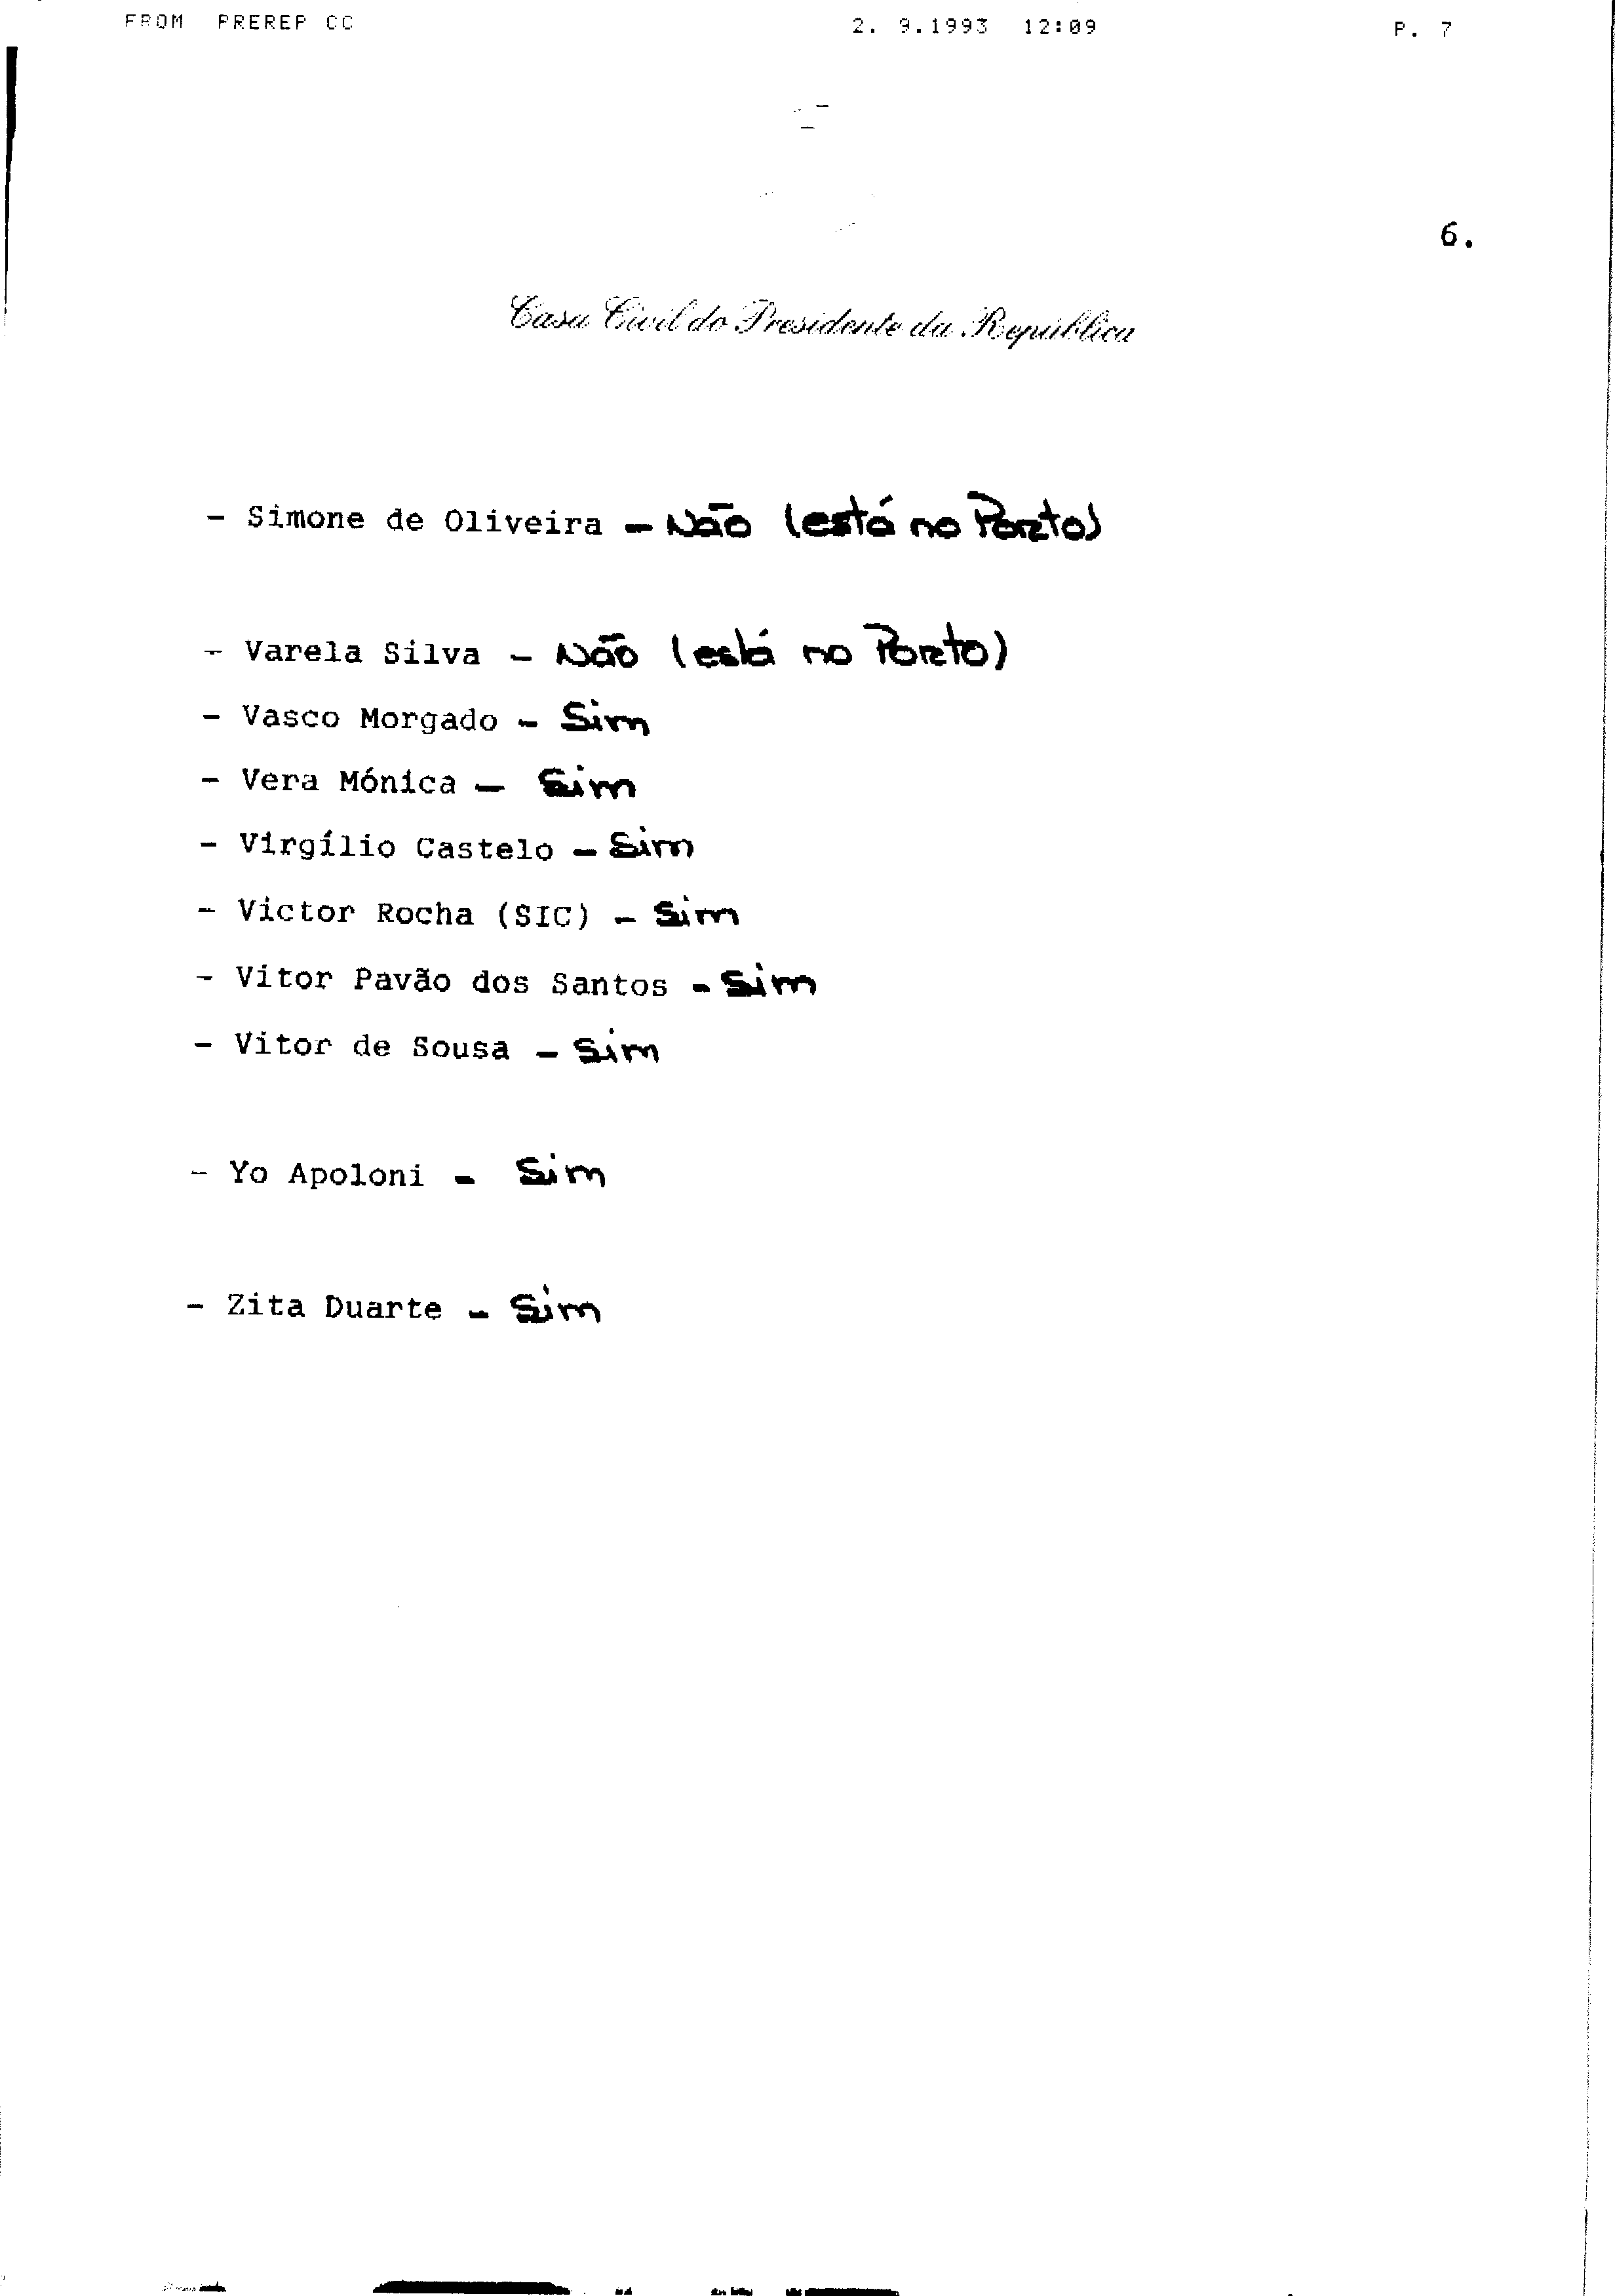 FROM PREREP CC 2. 9.1993 12:09 P. 7
6.
Casa Civil do Presidente da República
- Simone de Oliveira - Não (está no Porto)
- Varela Silva - Não (está no Porto)
- Vasco Morgado - Sim
- Vera Mónica - Sim
- Virgílio Castelo - Sim
- Victor Rocha (SIC) - Sim
- Vitor Pavão dos Santos - Sim
- Vitor de Sousa - Sim
- Yo Apoloni - Sim
- Zita Duarte - Sim